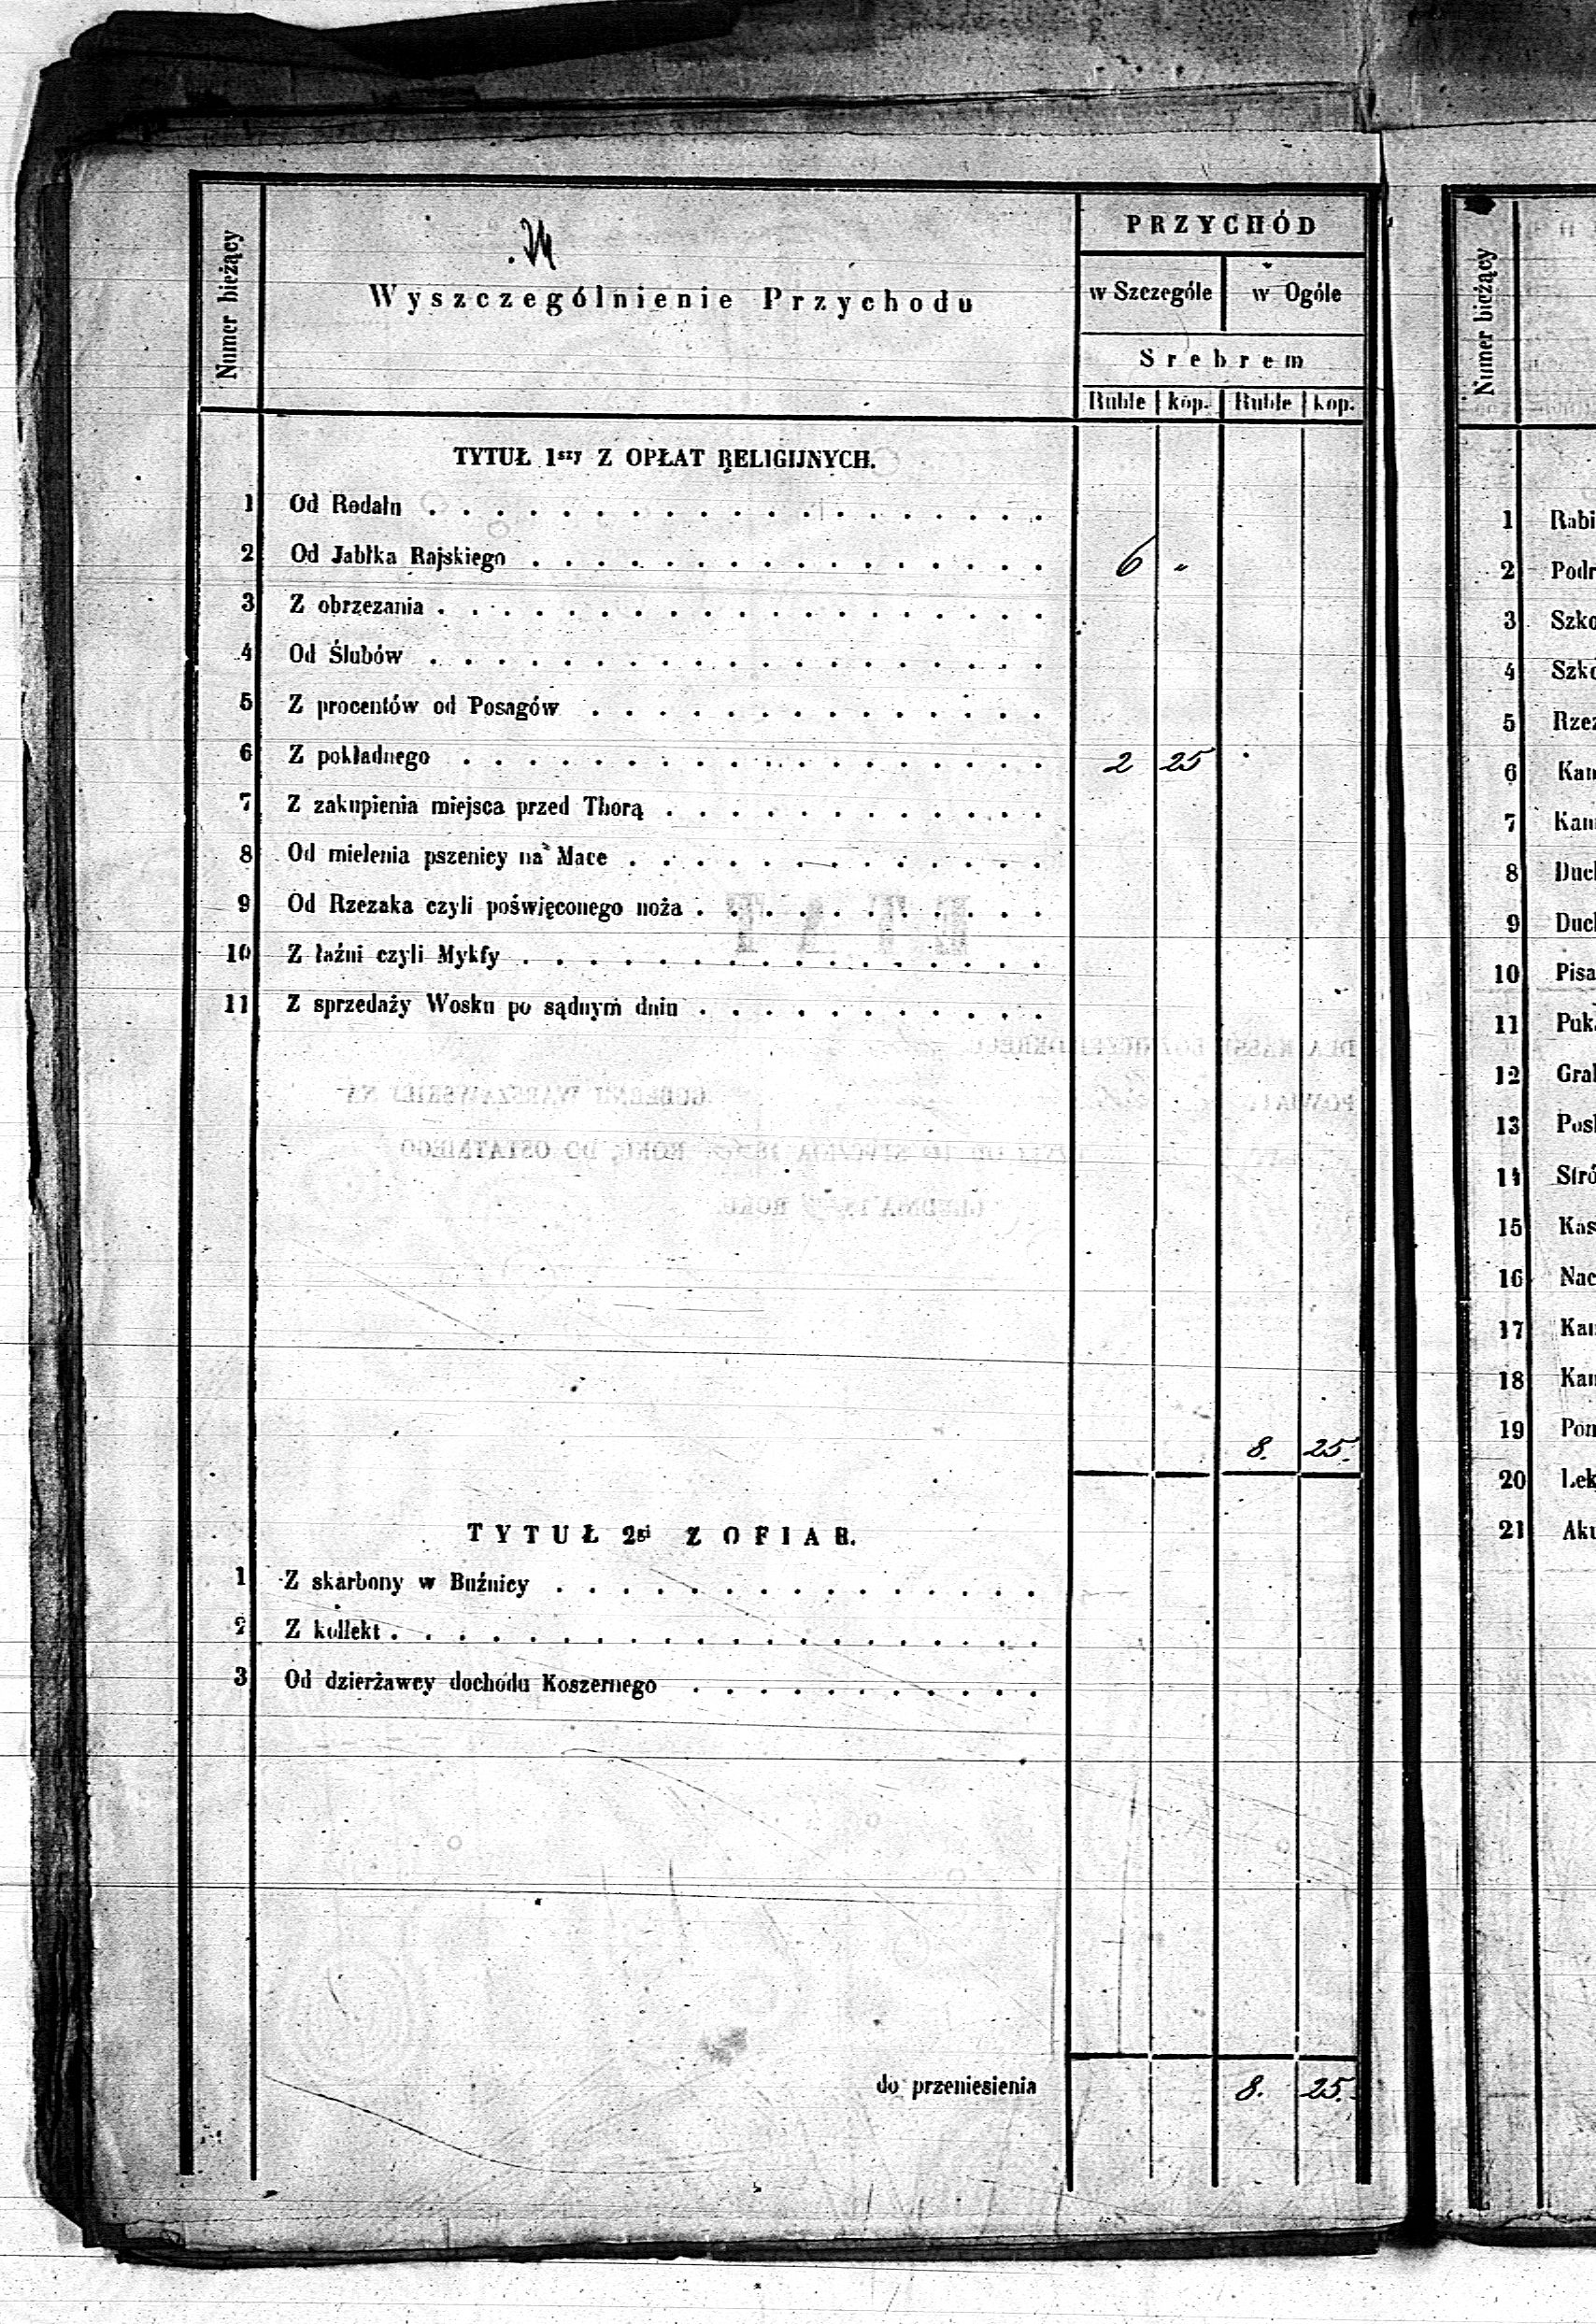 PRZYCHÓD
Numer bieżący
Wyszczególnienie Przychodu
w Szczególe w Ogóle
Srebrem
Ruble kop. Ruble kop.
TYTUŁ 1szy Z OPŁAT RELIGIJNYCH.
1 Od Rodału . . . . . . . . . . . . . . . . . . .
2 Od Jabłka Rajskiego . . . . . . . . . . . . . . . . 6 „
3 Z obrzezania . . . . . . . . . . . . . . . . . . .
4 Od Ślubów . . . . . . . . . . . . . . . . . . .
5 Z procentów od Posagów . . . . . . . . . . . . . .
6 Z pokładnego . . . . . . . . . . . . . . . . . . 2 25
7 Z zakupienia miejsca przed Thorą . . . . . . . . . . . .
8 Od mielenia pszenicy na Mace . . . . . . . . . . . . .
9 Od Rzezaka czyli poświęconego noża . . . . . . . . . . .
10 Z łaźni czyli Mykfy . . . . . . . . . . . . . . . .
11 Z sprzedaży Wosku po sądnym dniu . . . . . . . . . . .
8. 25.
TYTUŁ 2gi Z OFIAR.
1 Z skarbony w Buźnicy . . . . . . . . . . . . . . .
2 Z kollekt . . . . . . . . . . . . . . . . . . . .
3 Od dzierżawcy dochodu Koszernego . . . . . . . . . . .
do przeniesienia 8. 25.
Numer bieżący
1 Rabi
2 Podr
3 Szko
4 Szko
5 Rzez
6 Kan
7 Kan
8 Duch
9 Duch
10 Pisa
11 Puk
12 Grab
13 Posł
14 Stró
15 Kas
16 Nac
17 Kan
18 Kan
19 Pom
20 Lek
21 Aku